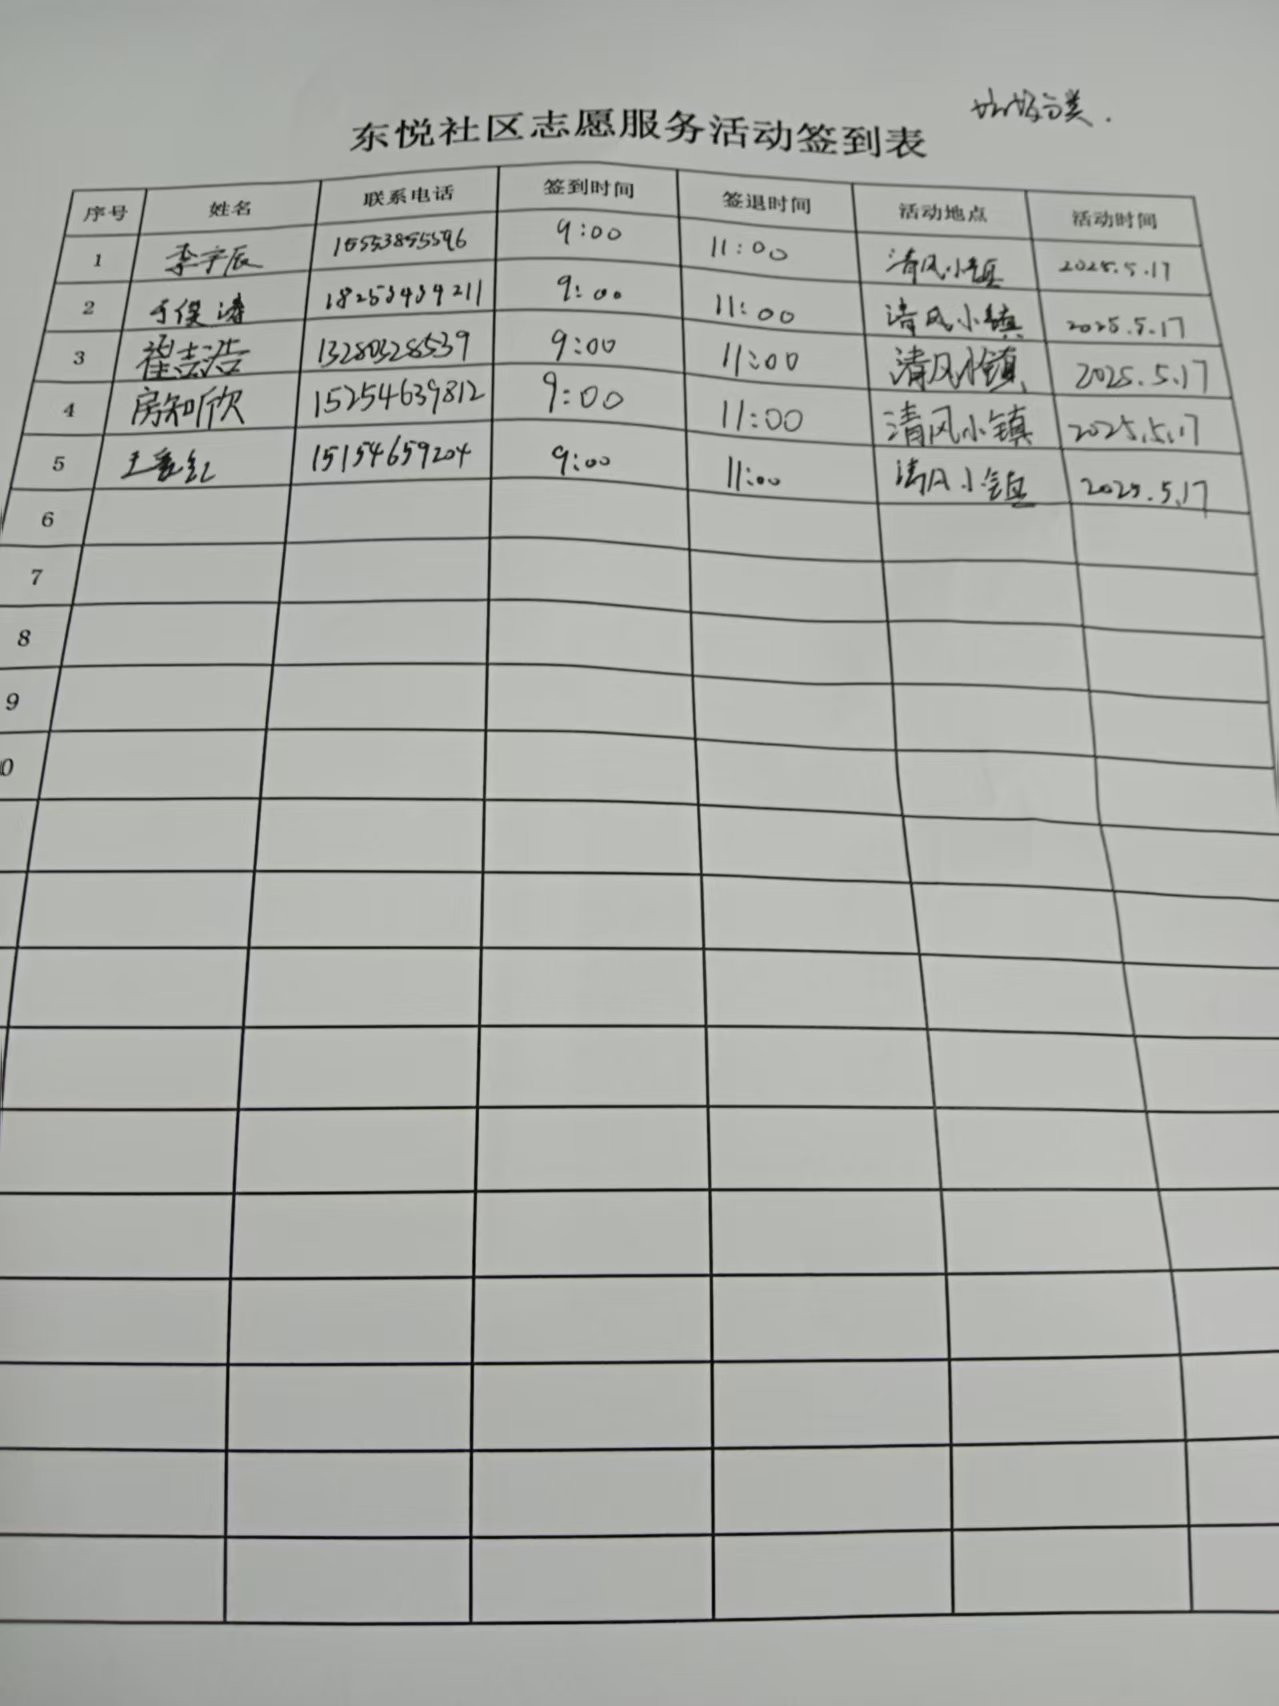 分类.
东悦社区志愿服务活动签到表
序号 姓名 联系电话 签到时间 签退时间 活动地点 活动时间
1 李宇辰 15553855596 9:00 11:00 清风小镇 2025.5.17
2 于俊涛 18253439211 9:00 11:00 清风小镇 2025.5.17
3 翟志浩 13280328539 9:00 11:00 清风小镇 2025.5.17
4 房知欣 15254639812 9:00 11:00 清风小镇 2025.5.17
5 王 红 15154659204 9:00 11:00 清风小镇 2025.5.17
6
7
8
9
0